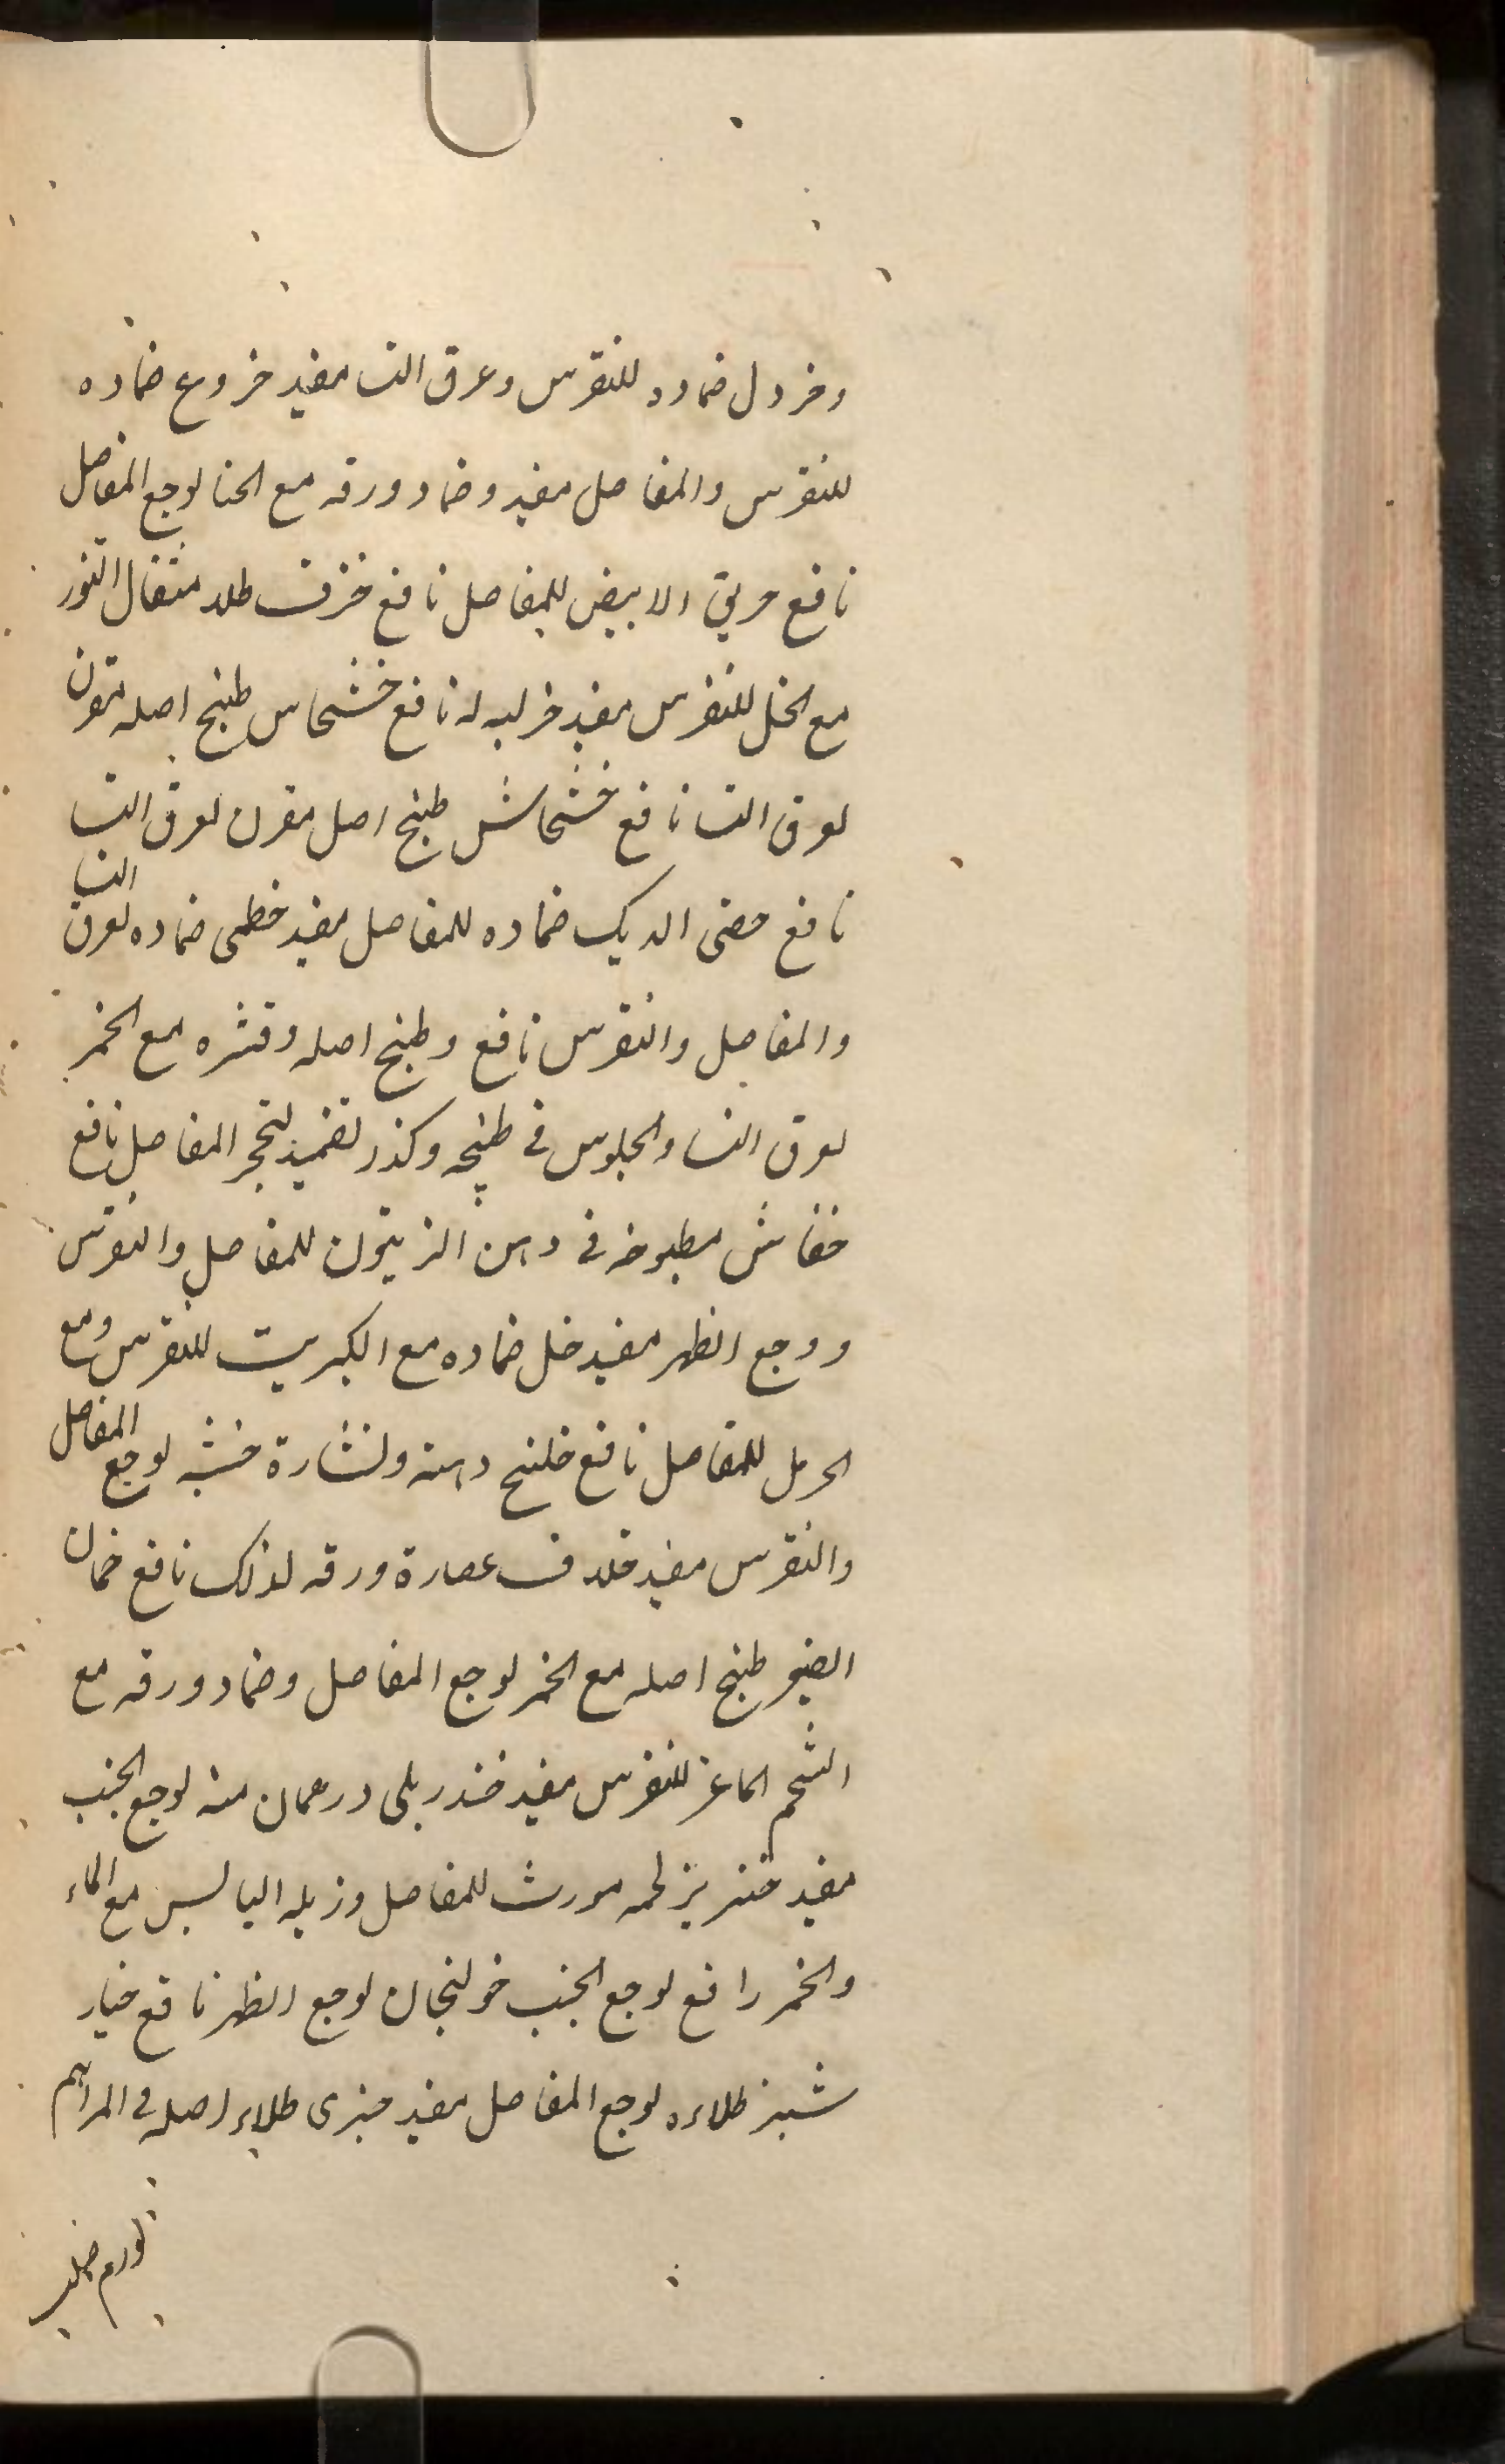 وخردل ضماده للنقرس وعرق النسا مفيد خروع ضماده
للنقرس والمفاصل مفيد وضماد ورقه مع الحنا لوجع المفاصل
نافع خربق الابيض للمفاصل نافع خزف طلاء مثقال التنور
مع الخل للنقرس مفيد خر لبه له نافع خشخاس طبخ اصله مقرن
لعرق النسا نافع خشخاش طبخ اصل مقرن لعرق النسا
نافع خصى الديك ضماده للمفاصل مفيد خطمى ضماده لعرق النسا
والمفاصل والنقرس نافع وطبخ اصله وقشره مع الخمر
لعرق النسا والجلوس فى طبخه وكذر تضميد لتحجر المفاصل نافع
خفاش مطبوخه فى دهن الزيتون للمفاصل والنقرس
ووجع الظهر مفيد خل ضماده مع الكبريت للنقرس ومع
الحرمل للمفاصل نافع خلنج دهنه ونشارة خشبه لوجع المفاصل
والنقرس مفيد خلاف عصارة ورقه لذلك نافع خمان
الصغير طبخ اصله مع الخمر لوجع المفاصل وضماد ورقه مع
الشحم الماعز للنقرس مفيد خندريلى درهمان منه لوجع الجنب
مفيد خنزير لحمه مورث للمفاصل وزبله اليابس مع الماء
والخمر رافع لوجع الجنب خولنجان لوجع الظهر نافع خيار
شنبر طلاءه لوجع المفاصل مفيد خيرى طلاء اصله فى المراهم
لورم صلب